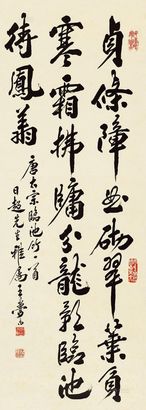 貞條障曲砌翠葉貫
寒霜拂牖分龍影臨池
待鳳翔
唐太宗臨池竹一首
日超先生雅屬 王